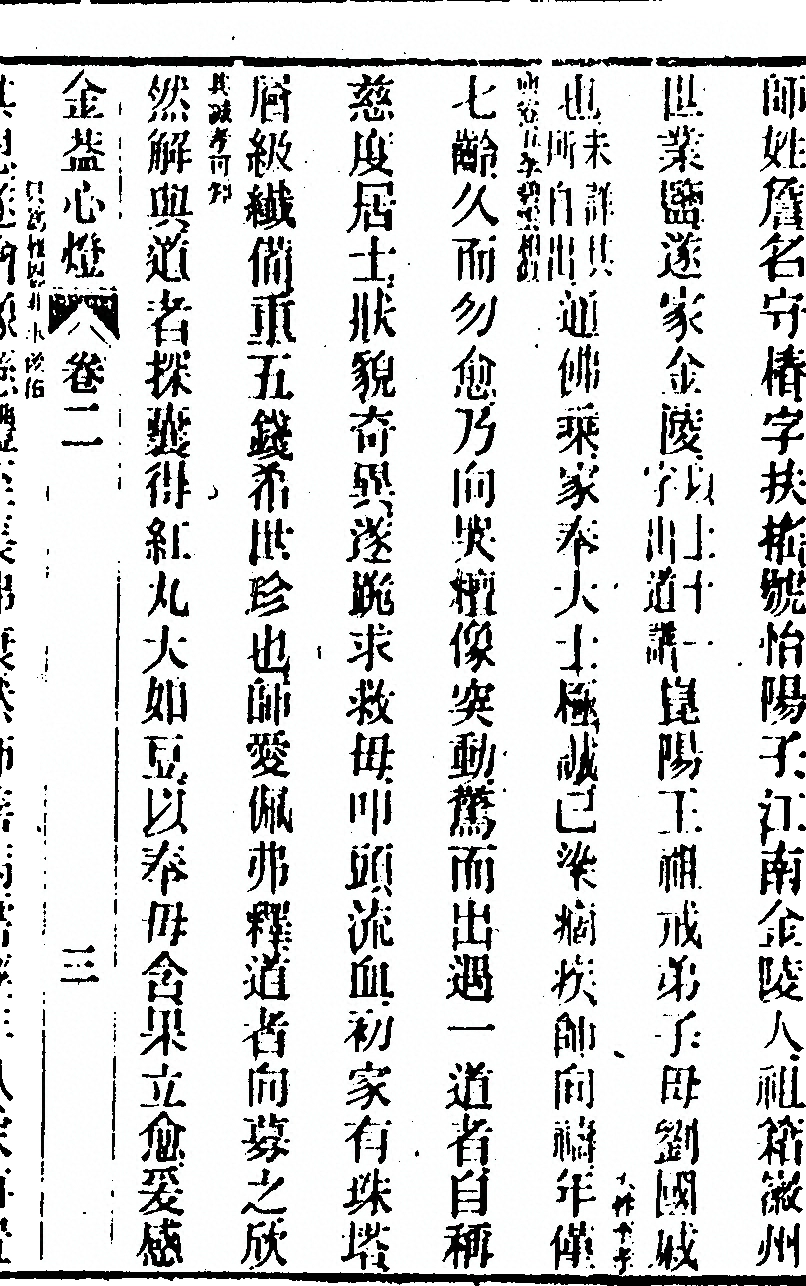 師姓詹名守椿字扶搖號怡陽子江南金陵人祖籍徽州
世業鹽遂家金陵以上十一字出道譜崑陽王祖戒弟子母劉國戚
也未詳其所自出通佛乘家奉大士極誠已染痼疾師向禱年僅
七齡久而勿愈乃向哭檀像突動驚而出遇一道者自稱
慈度居士狀貌奇異遂跪求救母叩頭流血初家有珠塔
層級纖備重五錢希世珍也師愛佩弗釋道者向募之欣
其誠孝可知
然解與道者探囊得紅丸大如豆以奉母含果立愈爰感
金蓋心燈 卷二 三